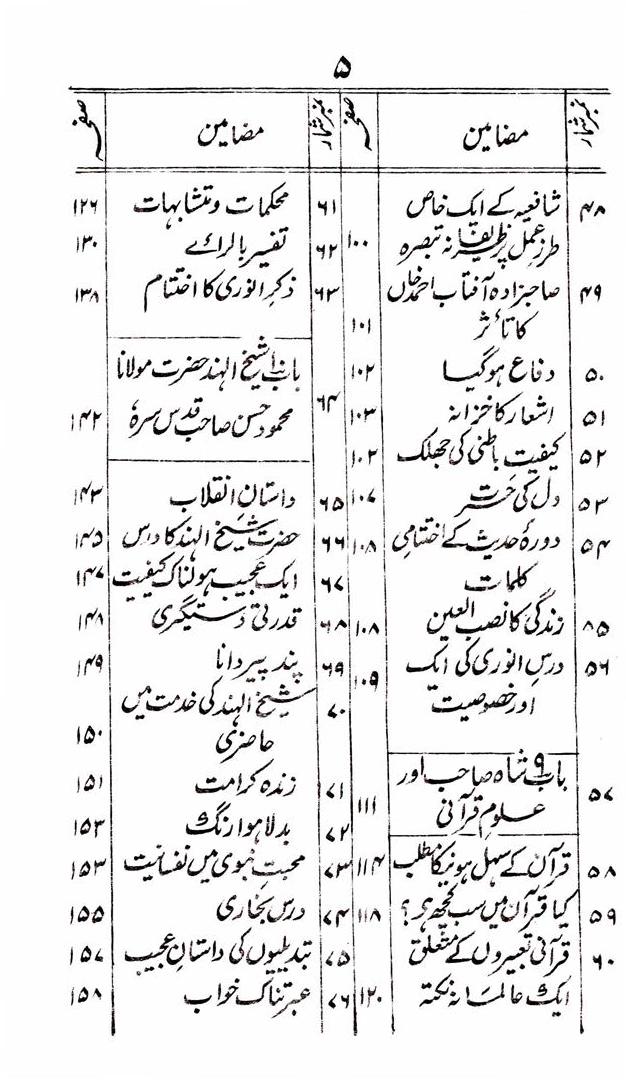 ۵
نمبر شمار مضامین صفحہ
۴۸ شافعیہ کے ایک خاص
طرز عمل پر ظریفانہ تبصرہ ۱۰۰
۴۹ صاحبزادہ آفتاب احمد خاں
کا تأثر ۱۰۱
۵۰ دفاع ہو گیا ۱۰۲
۵۱ اشعار کا خزانہ ۱۰۳
۵۲ کیفیت باطنی کی جھلک ۱۰۴
۵۳ دل کی حسرت ۱۰۷
۵۴ دورۂ حدیث کے اختتامی ۱۰۸
کلمات
۸۵ زندگی کا نصب العین ۱۰۸
۵۶ درس انوری کی ایک
اور خصوصیت ۱۰۹
۵۷ باب ۹ شاہ صاحب اور
علوم قرآنی ۱۱۱
۵۸ قرآن کے سہل ہونیکا مطلب ۱۱۴
۵۹ کیا قرآن میں سب کچھ ہے؟ ۱۱۸
۶۰ قرآنی تعبیروں کے متعلق
ایک عالمانہ نکتہ ۱۲۰
نمبر شمار مضامین صفحہ
۶۱ محکمات و متشابہات ۱۲۶
۶۲ تفسیر بالرائے ۱۳۰
۶۳ ذکر انوری کا اختتام ۱۳۸
باب ۱۰ شیخ الہند حضرت مولانا
۶۴ محمود حسن صاحب قدس سرہٗ ۱۴۲
۶۵ داستانِ انقلاب ۱۴۳
۶۶ حضرت شیخ الہند کا درس ۱۴۵
۶۷ ایک عجیب ہولناک کیفیت ۱۴۷
۶۸ قدرتی دستگیری ۱۴۸
۶۹ پند پیر دانا ۱۴۹
۷۰ شیخ الہند کی خدمت میں
حاضری ۱۵۰
۷۱ زندہ کرامت ۱۵۱
۷۲ بدلا ہوا رنگ ۱۵۳
۷۳ محبتِ نبوی میں نفسانیت ۱۵۳
۷۴ درس بخاری ۱۵۵
۷۵ تبدیلیوں کی داستانِ عجیب ۱۵۷
۷۶ عبرتناک خواب ۱۵۸